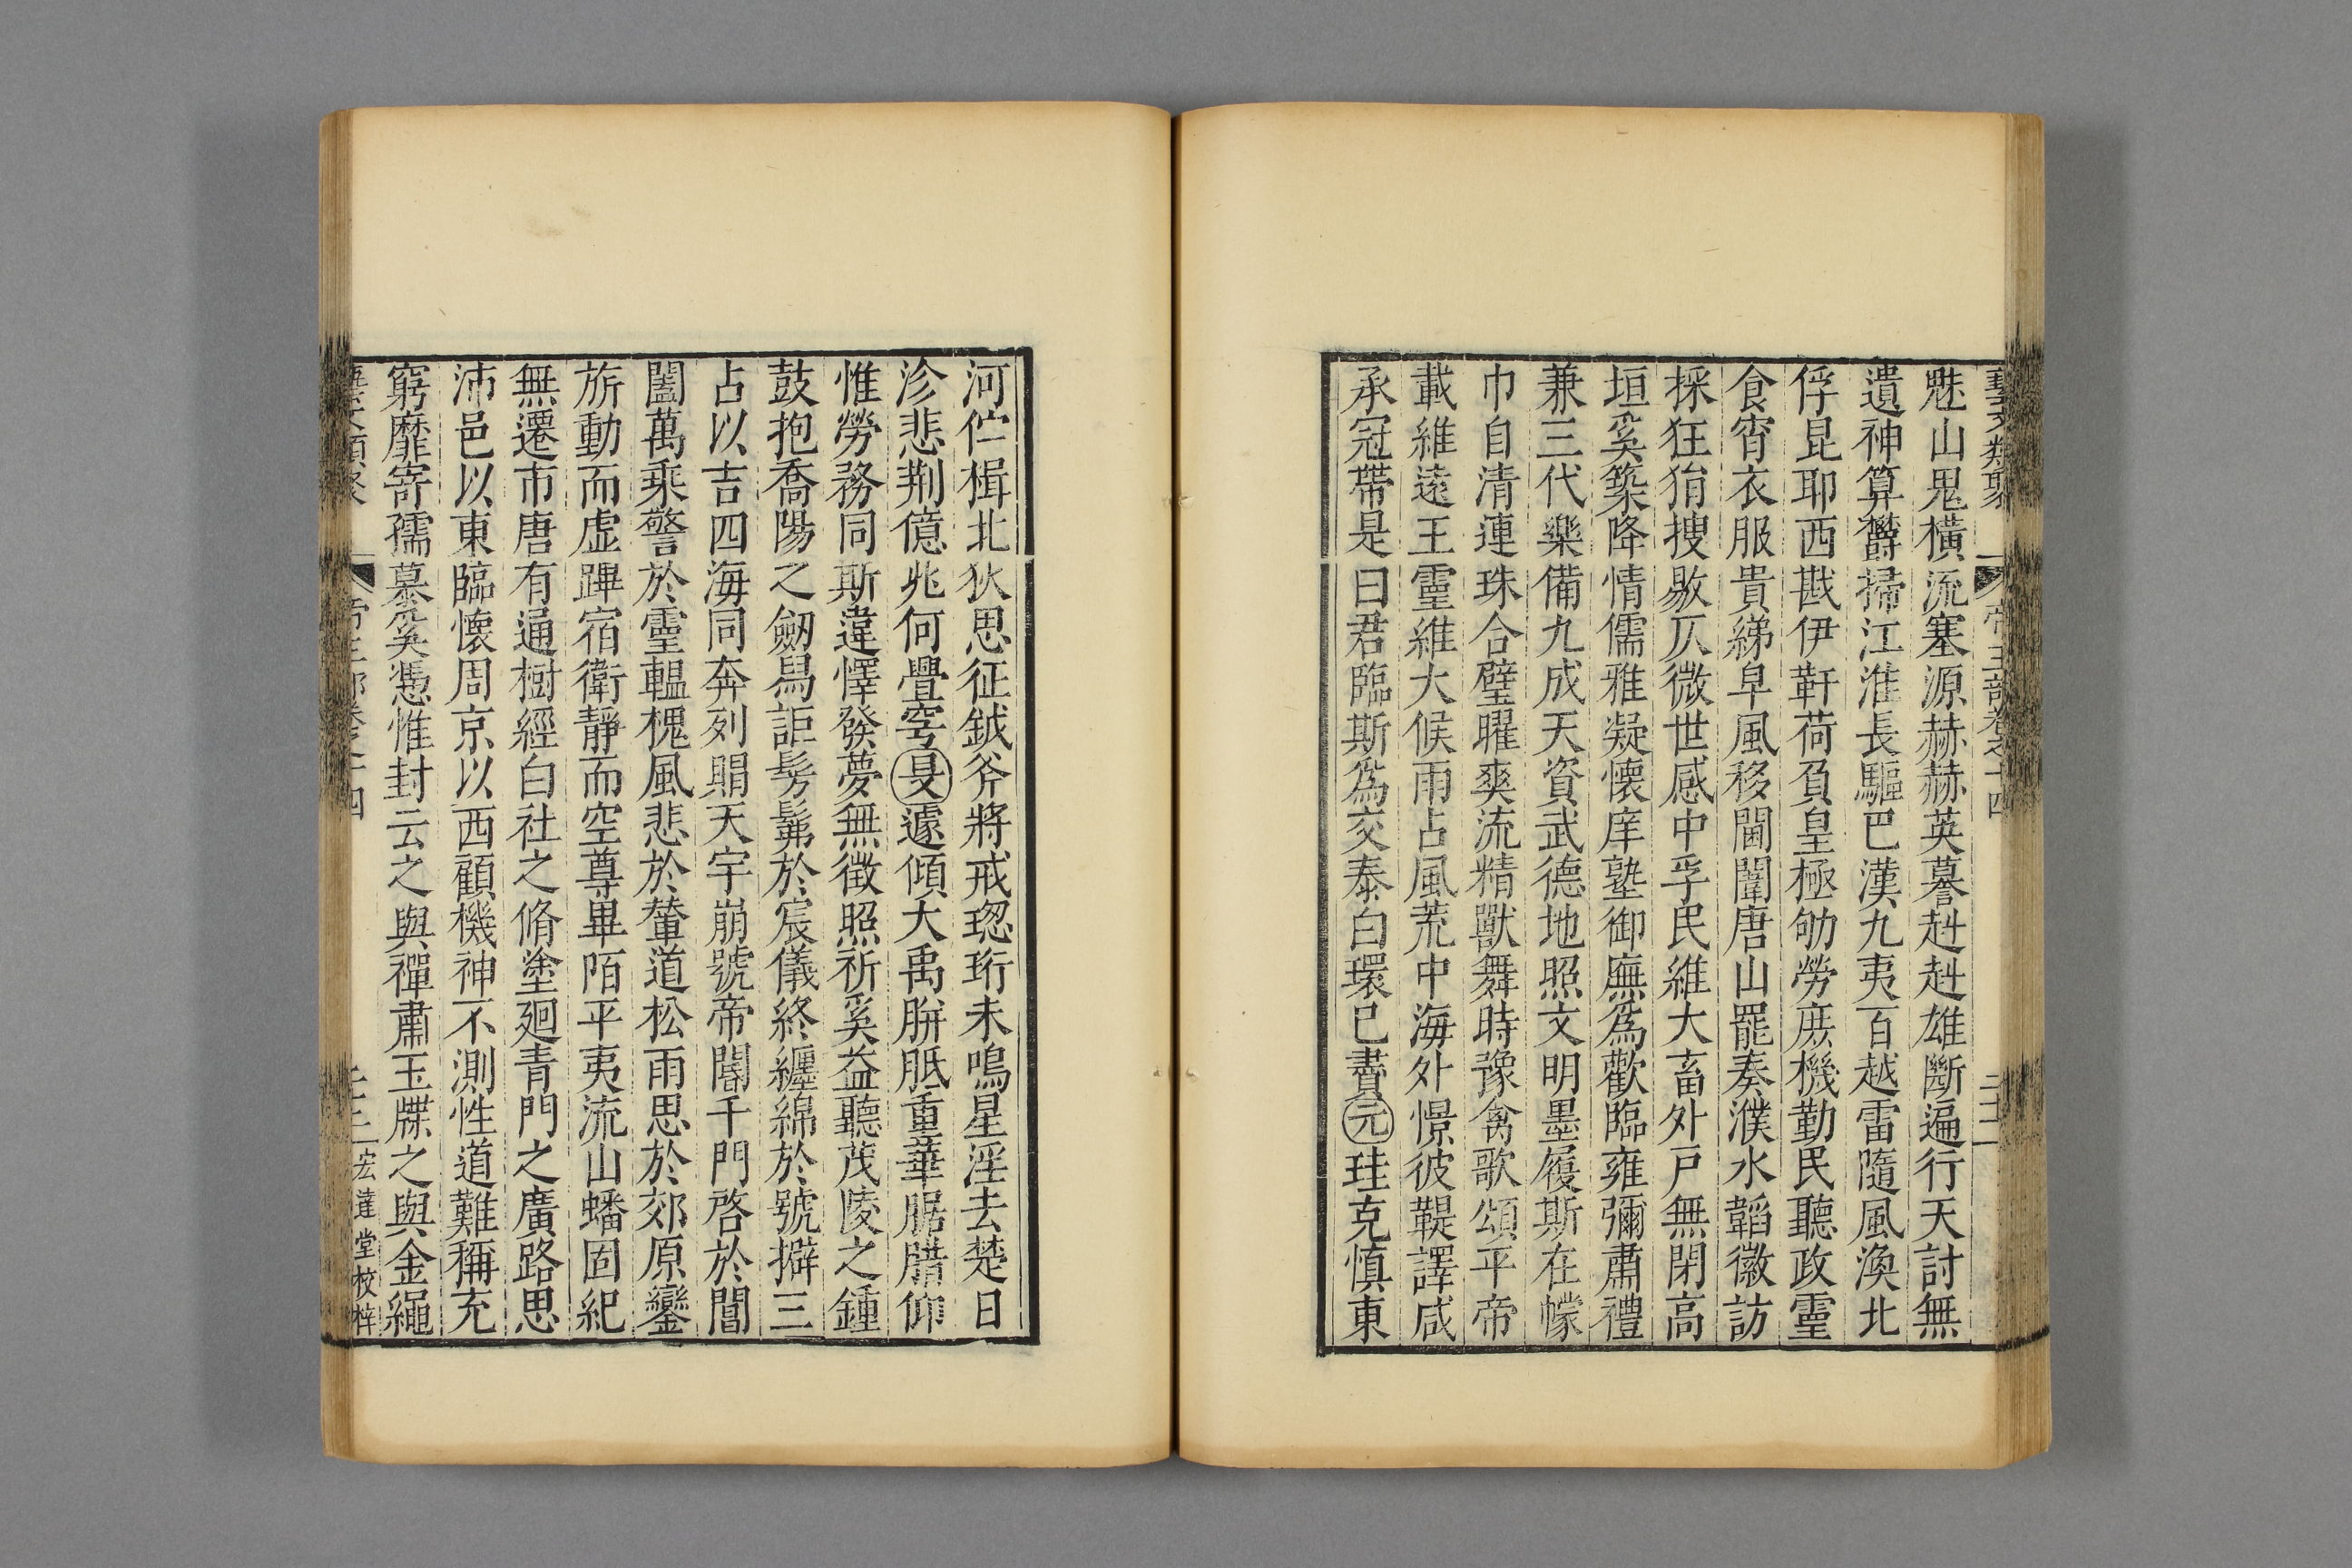 藝文類聚 帝王部卷之十四 二十二
魋山鬼橫流塞源赫赫英謩赳赳雄斷遍行天討無
遺神算欝掃江淮長驅巴漢九夷百越雷隨風渙北
俘昆耶西戡伊軒荷負皇極劬勞庶機勤民聽政靈
食宵衣服貴綈皁風移閫闈唐山罷奏濮水韜徽訪
採狂狷搜敭仄微世感中孚民維大畜外戶無閉高
垣奚築降情儒雅凝懷庠塾御廡爲歡臨雍彌肅禮
兼三代樂備九成天資武德地照文明墨履斯在幪
巾自清連珠合璧曜爽流精獸舞時豫禽歌頌平帝
載維遠王靈維大候雨占風荒中海外憬彼鞮譯咸
承冠帶是曰君臨斯爲交泰白環已賮元珪克愼東
河伫楫北狄思征鉞斧將戒璁珩未鳴星淫去楚日
沴悲荆億兆何舋穹旻遽傾大禹胼胝重華腒腊仰
惟勞務同斯違懌發夢無徵照祈奚益聽茂陵之鍾
鼓抱喬陽之劒舄詎髣髴於宸儀終纏綿於號擗三
占以吉四海同奔列賵天宇崩號帝閽千門啓於閶
闔萬乘警於靈轀槐風悲於輦道松雨思於郊原鑾
旂動而虛蹕宿衛靜而空尊畢陌平夷流山蟠固紀
無遷市唐有通樹經白社之脩塗廻青門之廣路思
沛邑以東臨懷周京以西顧機神不測性道難稱充
窮靡寄孺慕奚憑惟封云之與禪肅玉牒之與金繩
藝文類聚 帝王部卷之十四 二十二 宏達堂校梓